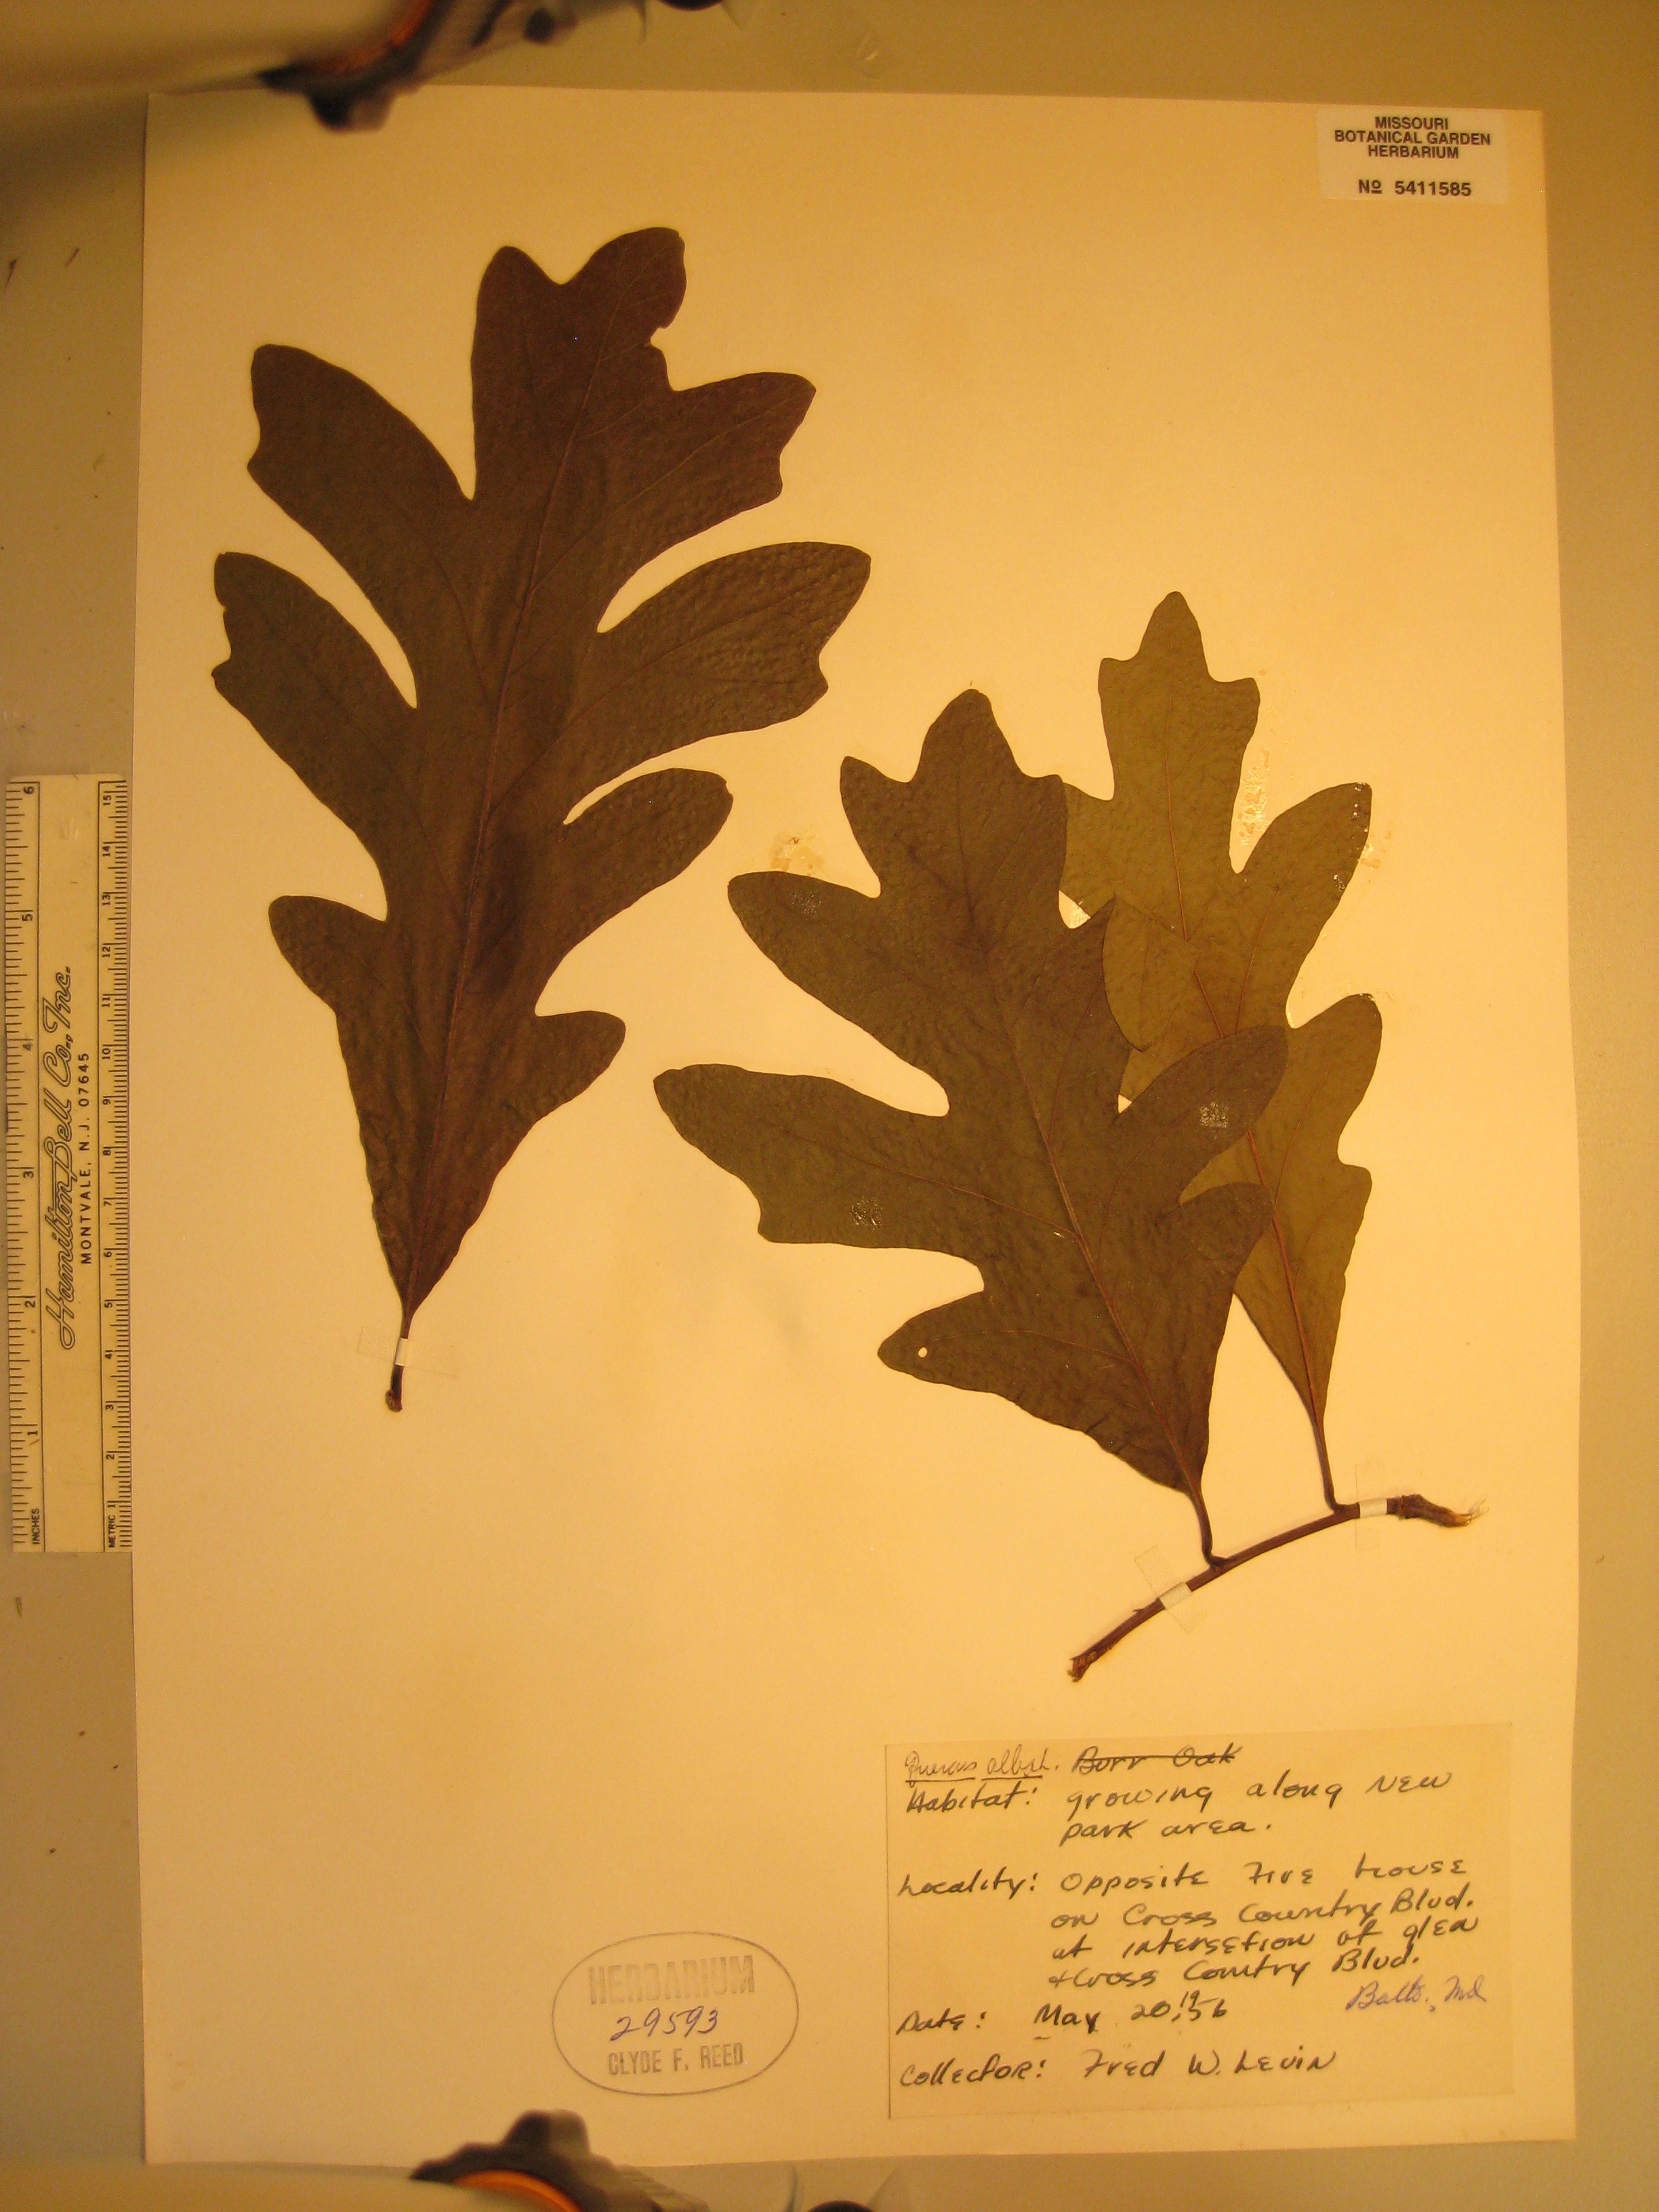 MISSOURI
BOTANICAL GARDEN
HERBARIUM
No 5411585
INCHES 1 2 3 4 5 6
Hamilton Bell Co., Inc.
MONTVALE, N.J. 07645
METRIC 1 2 3 4 5 6 7 8 9 10 11 12 13 14 15
Quercus alba L. Burr Oak
Habitat: growing along New
park area.
Locality: Opposite Fire house
on Cross Country Blvd.
at intersetion of glen
+ Cross Country Blvd.
Balto., Md
Date: May 20, 1956
Collector: Fred W. Levin
HERBARIUM
29593
CLYDE F. REED